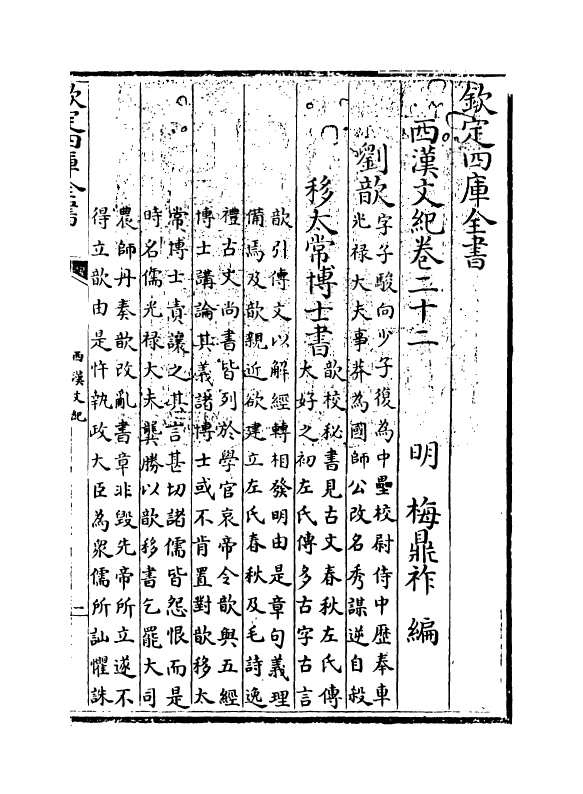 欽定四庫全書
西漢文紀卷二十二
明 梅鼎祚 編
劉歆
字子駿向少子復為中壘校尉侍中歴奉車
光禄大夫事莽為國師公改名秀謀逆自殺
移太常博士書
歆校秘書見古文春秋左氏傳
大好之初左氏傳多古字古言
歆引傳文以解經轉相發明由是章句義理
備焉及歆親近欲建立左氏春秋及毛詩逸
禮古文尚書皆列於學官哀帝令歆與五經
博士講論其義諸博士或不肯置對歆移太
常博士責讓之其言甚切諸儒皆怨恨而是
時名儒光禄大夫龔勝以歆移書乞罷大司
農師丹奏歆改亂書章非毀先帝所立遂不
得立歆由是忤執政大臣為衆儒所訕懼誅
欽定四庫全書
西漢文紀